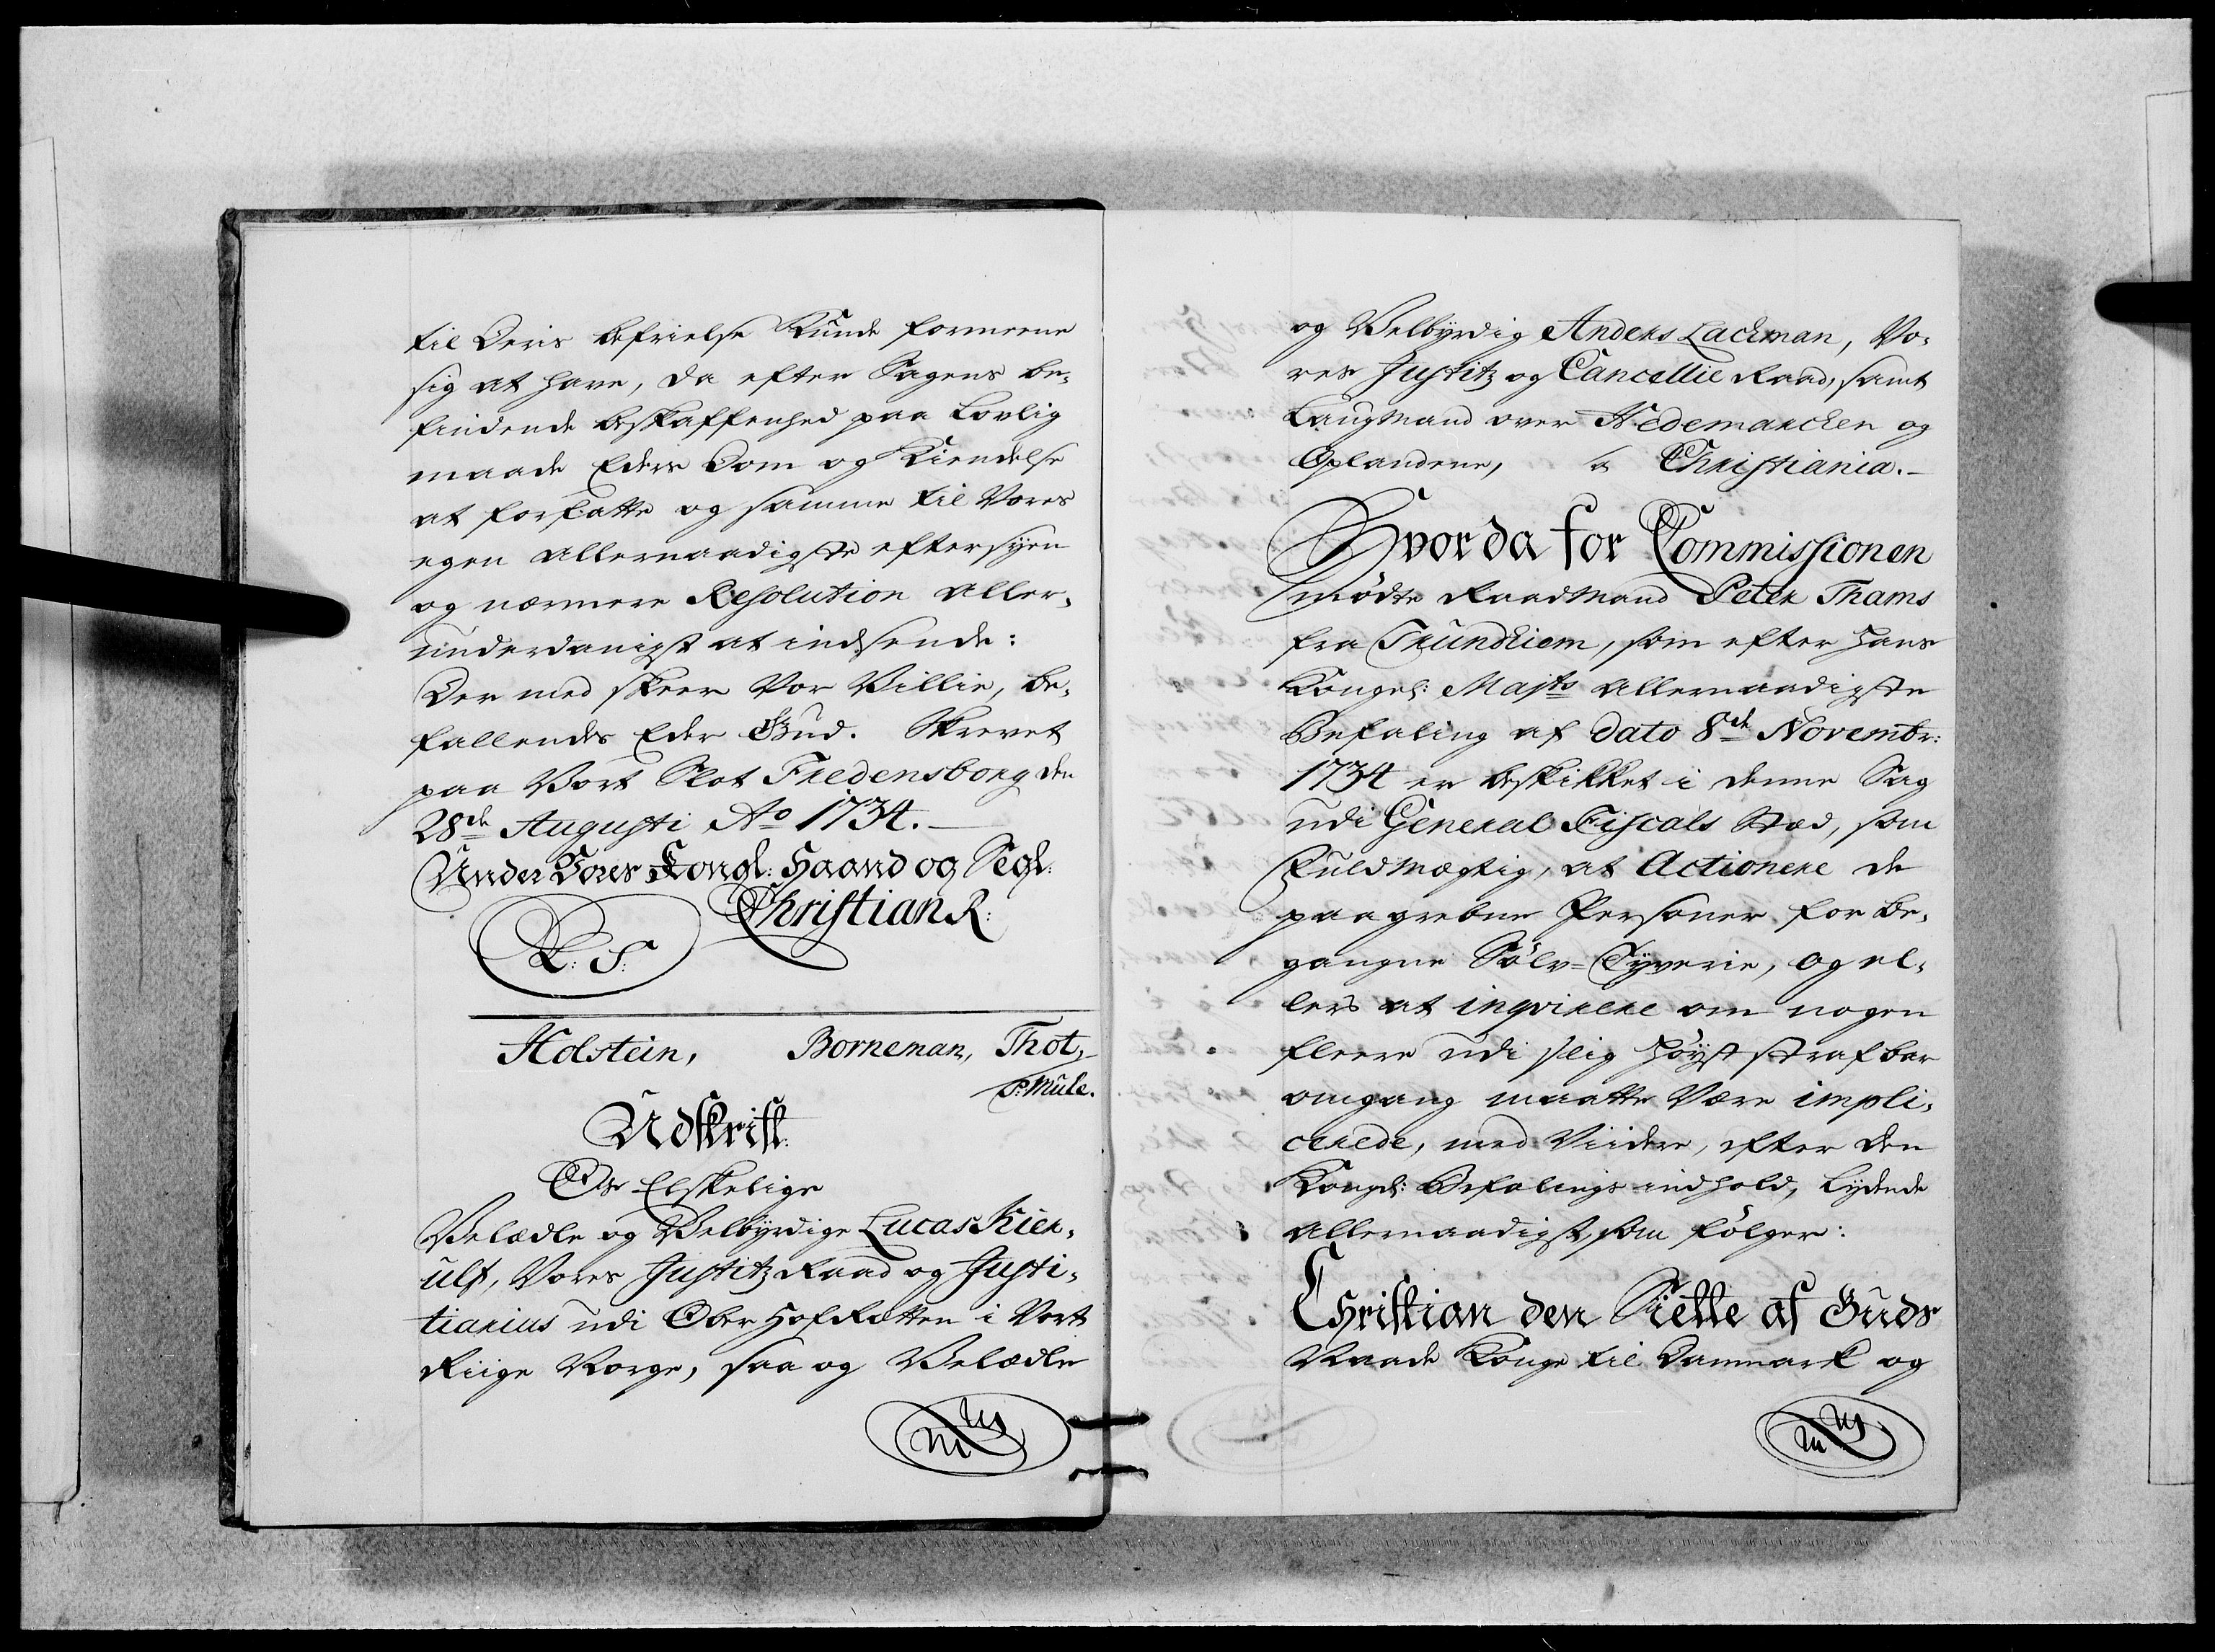 til Deris befrielse Kunde formeene
sig at have, da efter Sagens be-
findende beskaffenhed paa Lovlig
maade Eders Dom og Kiendelse
at forfatte og samme til Vores
egen allernaadigste eftersyen
og nærmere Resolution aller-
underdanigst at indsende:
Der med skeer Vor Villie, be-
fallendes Eder Gud. Skrevet
paa Vort Slot Fredensborg den
28de Augusti Ao 1734.
Under Vores Kongl: Haand og Segl:
Christian R:
L: S:
Holstein, Borneman, Thot,
P: Mule.
Udskrift:
Os Elskelige
Velædle og Velbyrdige Lucas Kier-
ulf, Vores Justitz Raad og Justi-
tiarius udi Ober Hof Rætten i Vort
Riige Norge, saa og Velædle
og Velbyrdig Anders Lachman, Vo-
res Justitz og Cancellie Raad, samt
Laugmand over Hedemarchen og
Oplandene, a Christiania.
Hvor da for Commissionen
mødte Raadmand Peter Thams
fra Trundhiem, som efter Hans
Kongel: Majts allernaadigste
Befaling af dato 8de Novembr:
1734 er beskikket i denne Sag
udi General Fiscals Stæd, som
Fuldmægtig, at Actionere de
paagrebne Personer for be-
gangne Sølv=Tyverie, og el-
lers at inqvirere om nogen
fleere udi slig høyst strafbar
omgang maatte Være impli-
cerede, med Viidere, efter den
Kongel: Befalings indhold, lydende
allernaadigst, som følger:
Christian den Siette af Guds
Naade Konge til Danmark og